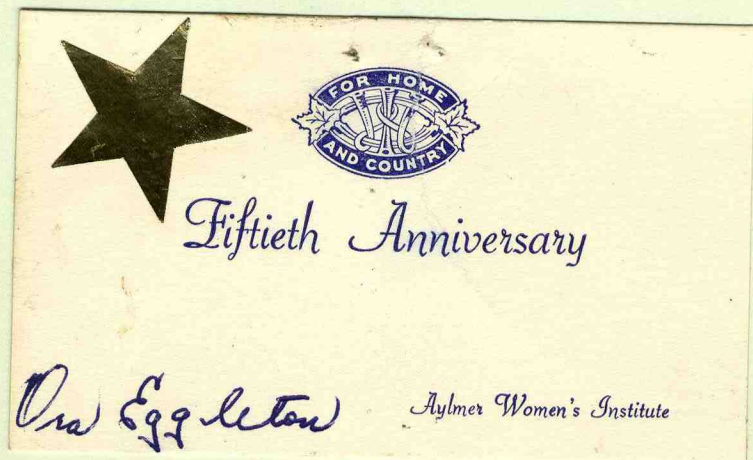 FOR HOME
WI
AND COUNTRY
Fiftieth Anniversary
Ora Eggleton
Aylmer Women's Institute